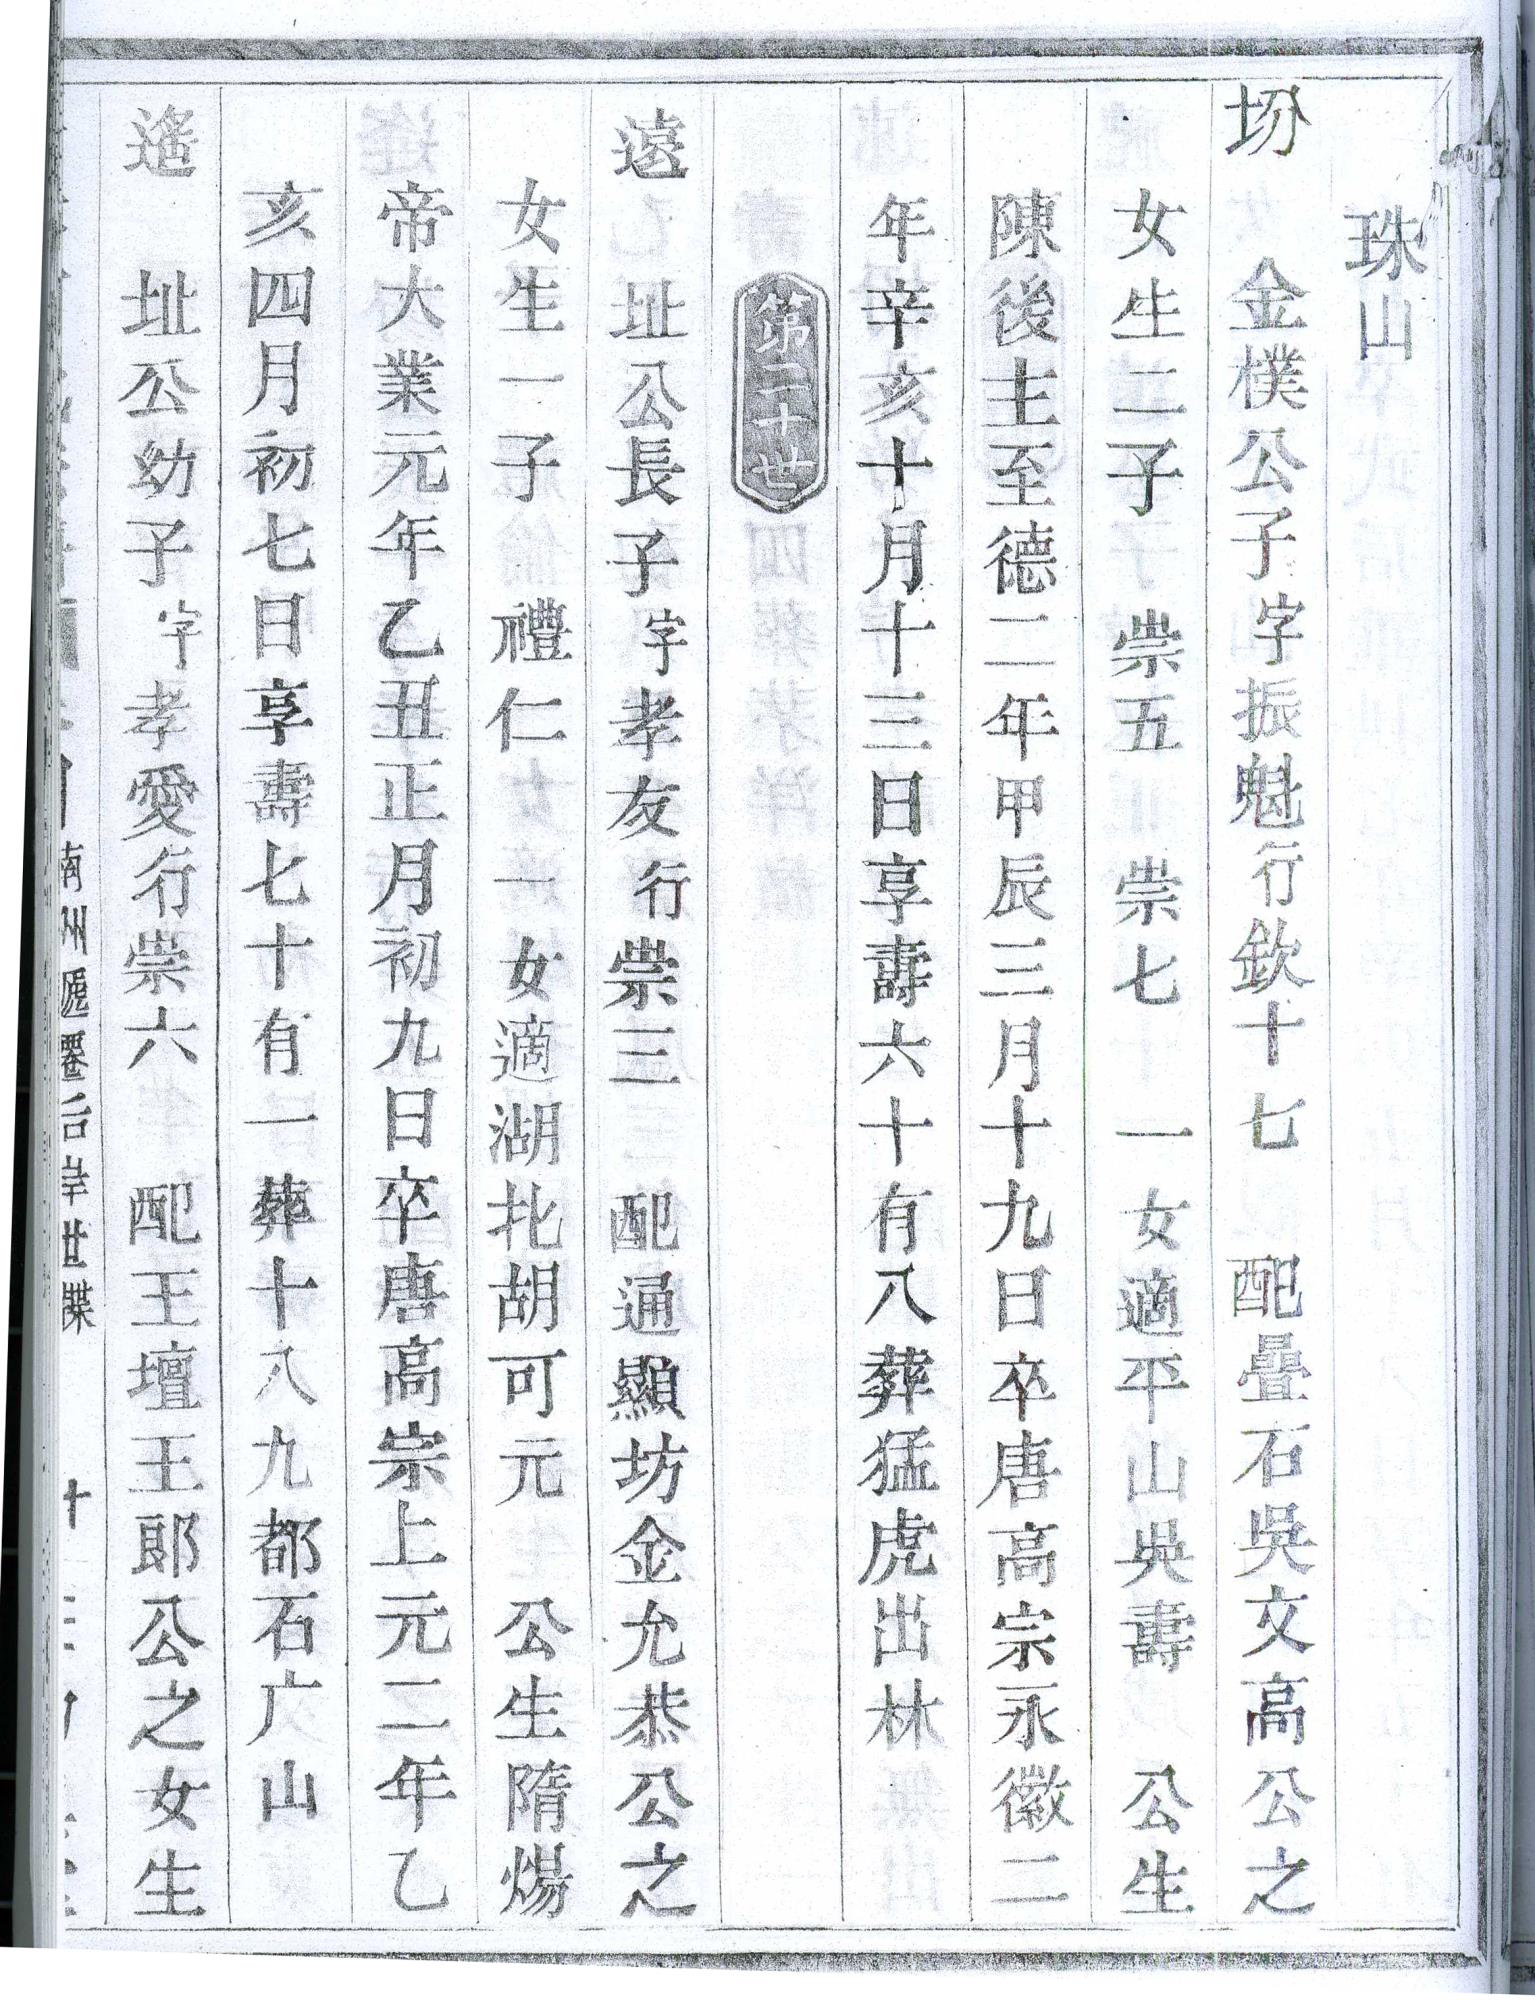 珠山
圽　金樸公子字振魁行欽十七　配疊石吳文高公之
女生二子　崇五　崇七　一女適平山吳壽　公生
陳後主至德二年甲辰三月十九日卒唐高宗永徽二
年辛亥十月十三日享壽六十有八葬猛虎出林
第二十世
逺　址公長子字孝友行崇三　配通顯坊金允恭公之
女生一子　禮仁　一女適湖北胡可元　公生隋煬
帝大業元年乙丑正月初九日卒唐高宗上元二年乙
亥四月初七日享壽七十有一葬十八九都石广山
遙　址公幼子字孝愛行崇六　配王壇王郎公之女生